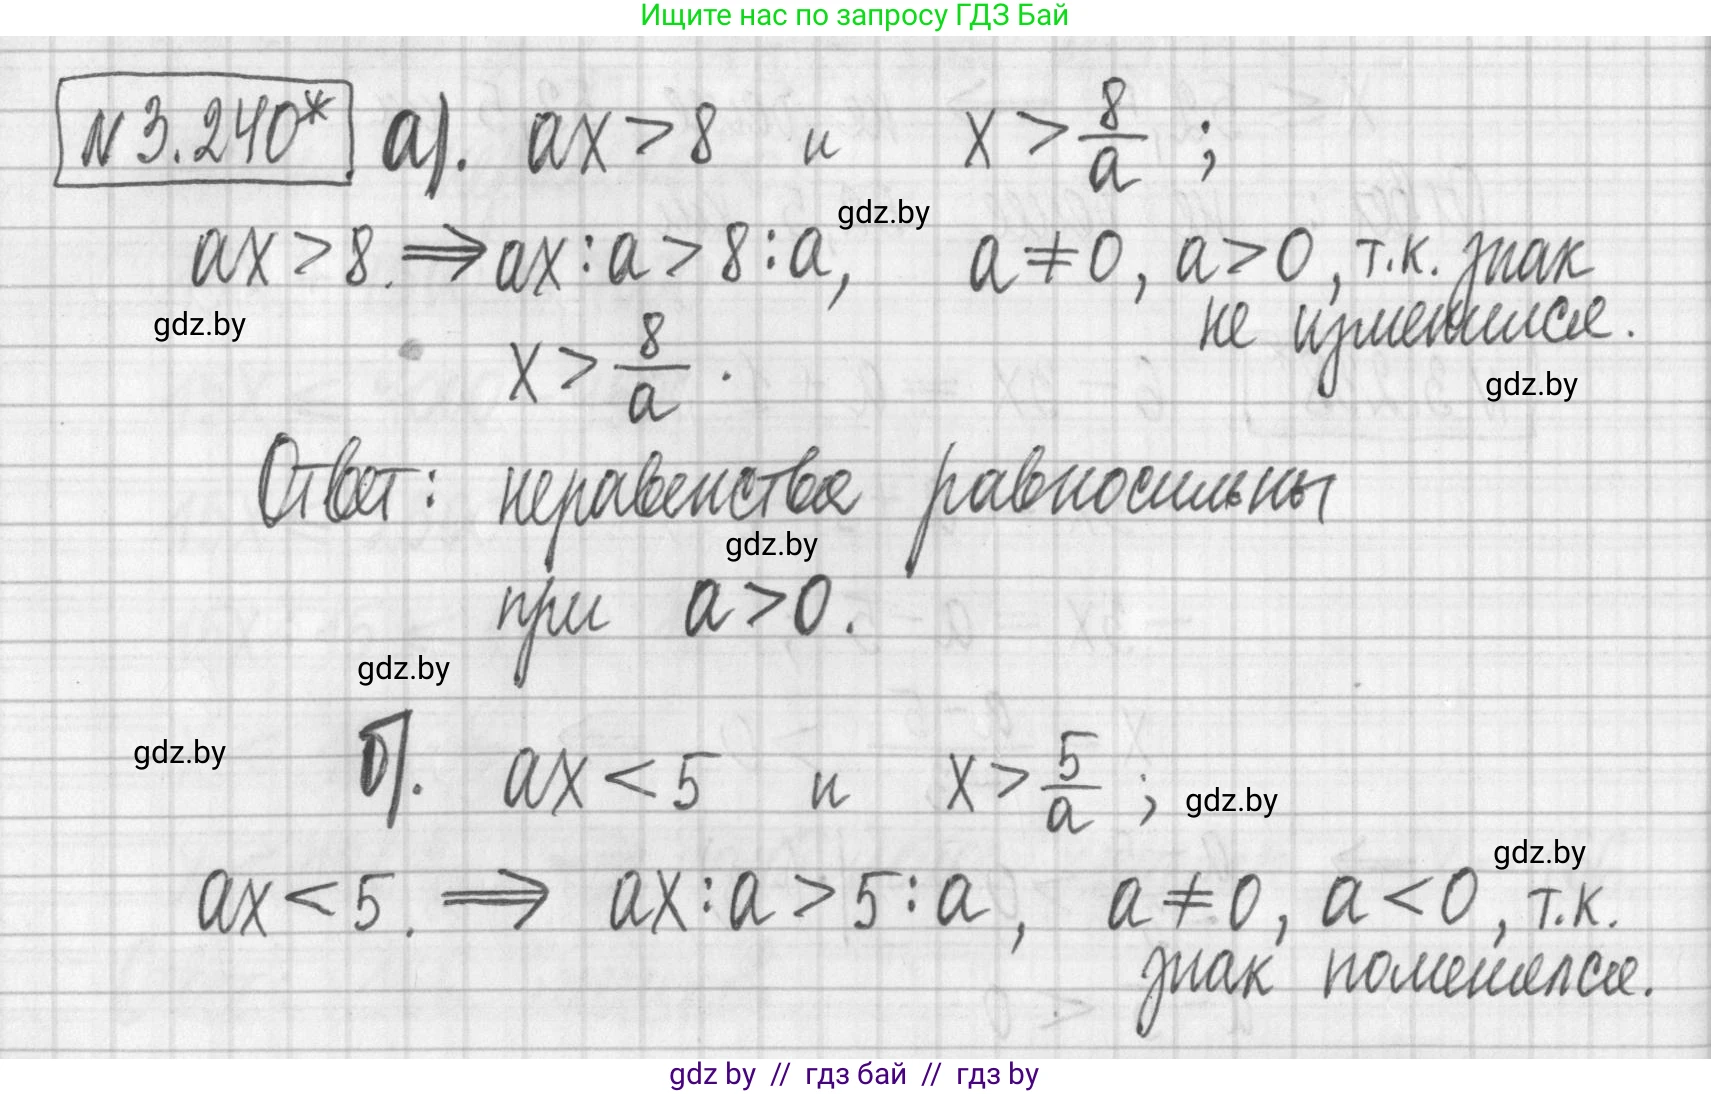 Ищите нас по запросу ГДЗ Бай
№ 3.240* а). ax > 8 и x > 8/a ;
gdz.by
ax > 8. ⇒ ax : a > 8 : a, a ≠ 0, a > 0, т.к. знак
не изменился.
gdz.by
x > 8/a .
gdz.by
Ответ: неравенства равносильны
gdz.by
при a > 0.
gdz.by
gdz.by
б). ax < 5 и x > 5/a ;
gdz.by
gdz.by
ax < 5. ⇒ ax : a > 5 : a, a ≠ 0, a < 0, т.к.
знак поменялся.
gdz by // гдз бай // гдз by